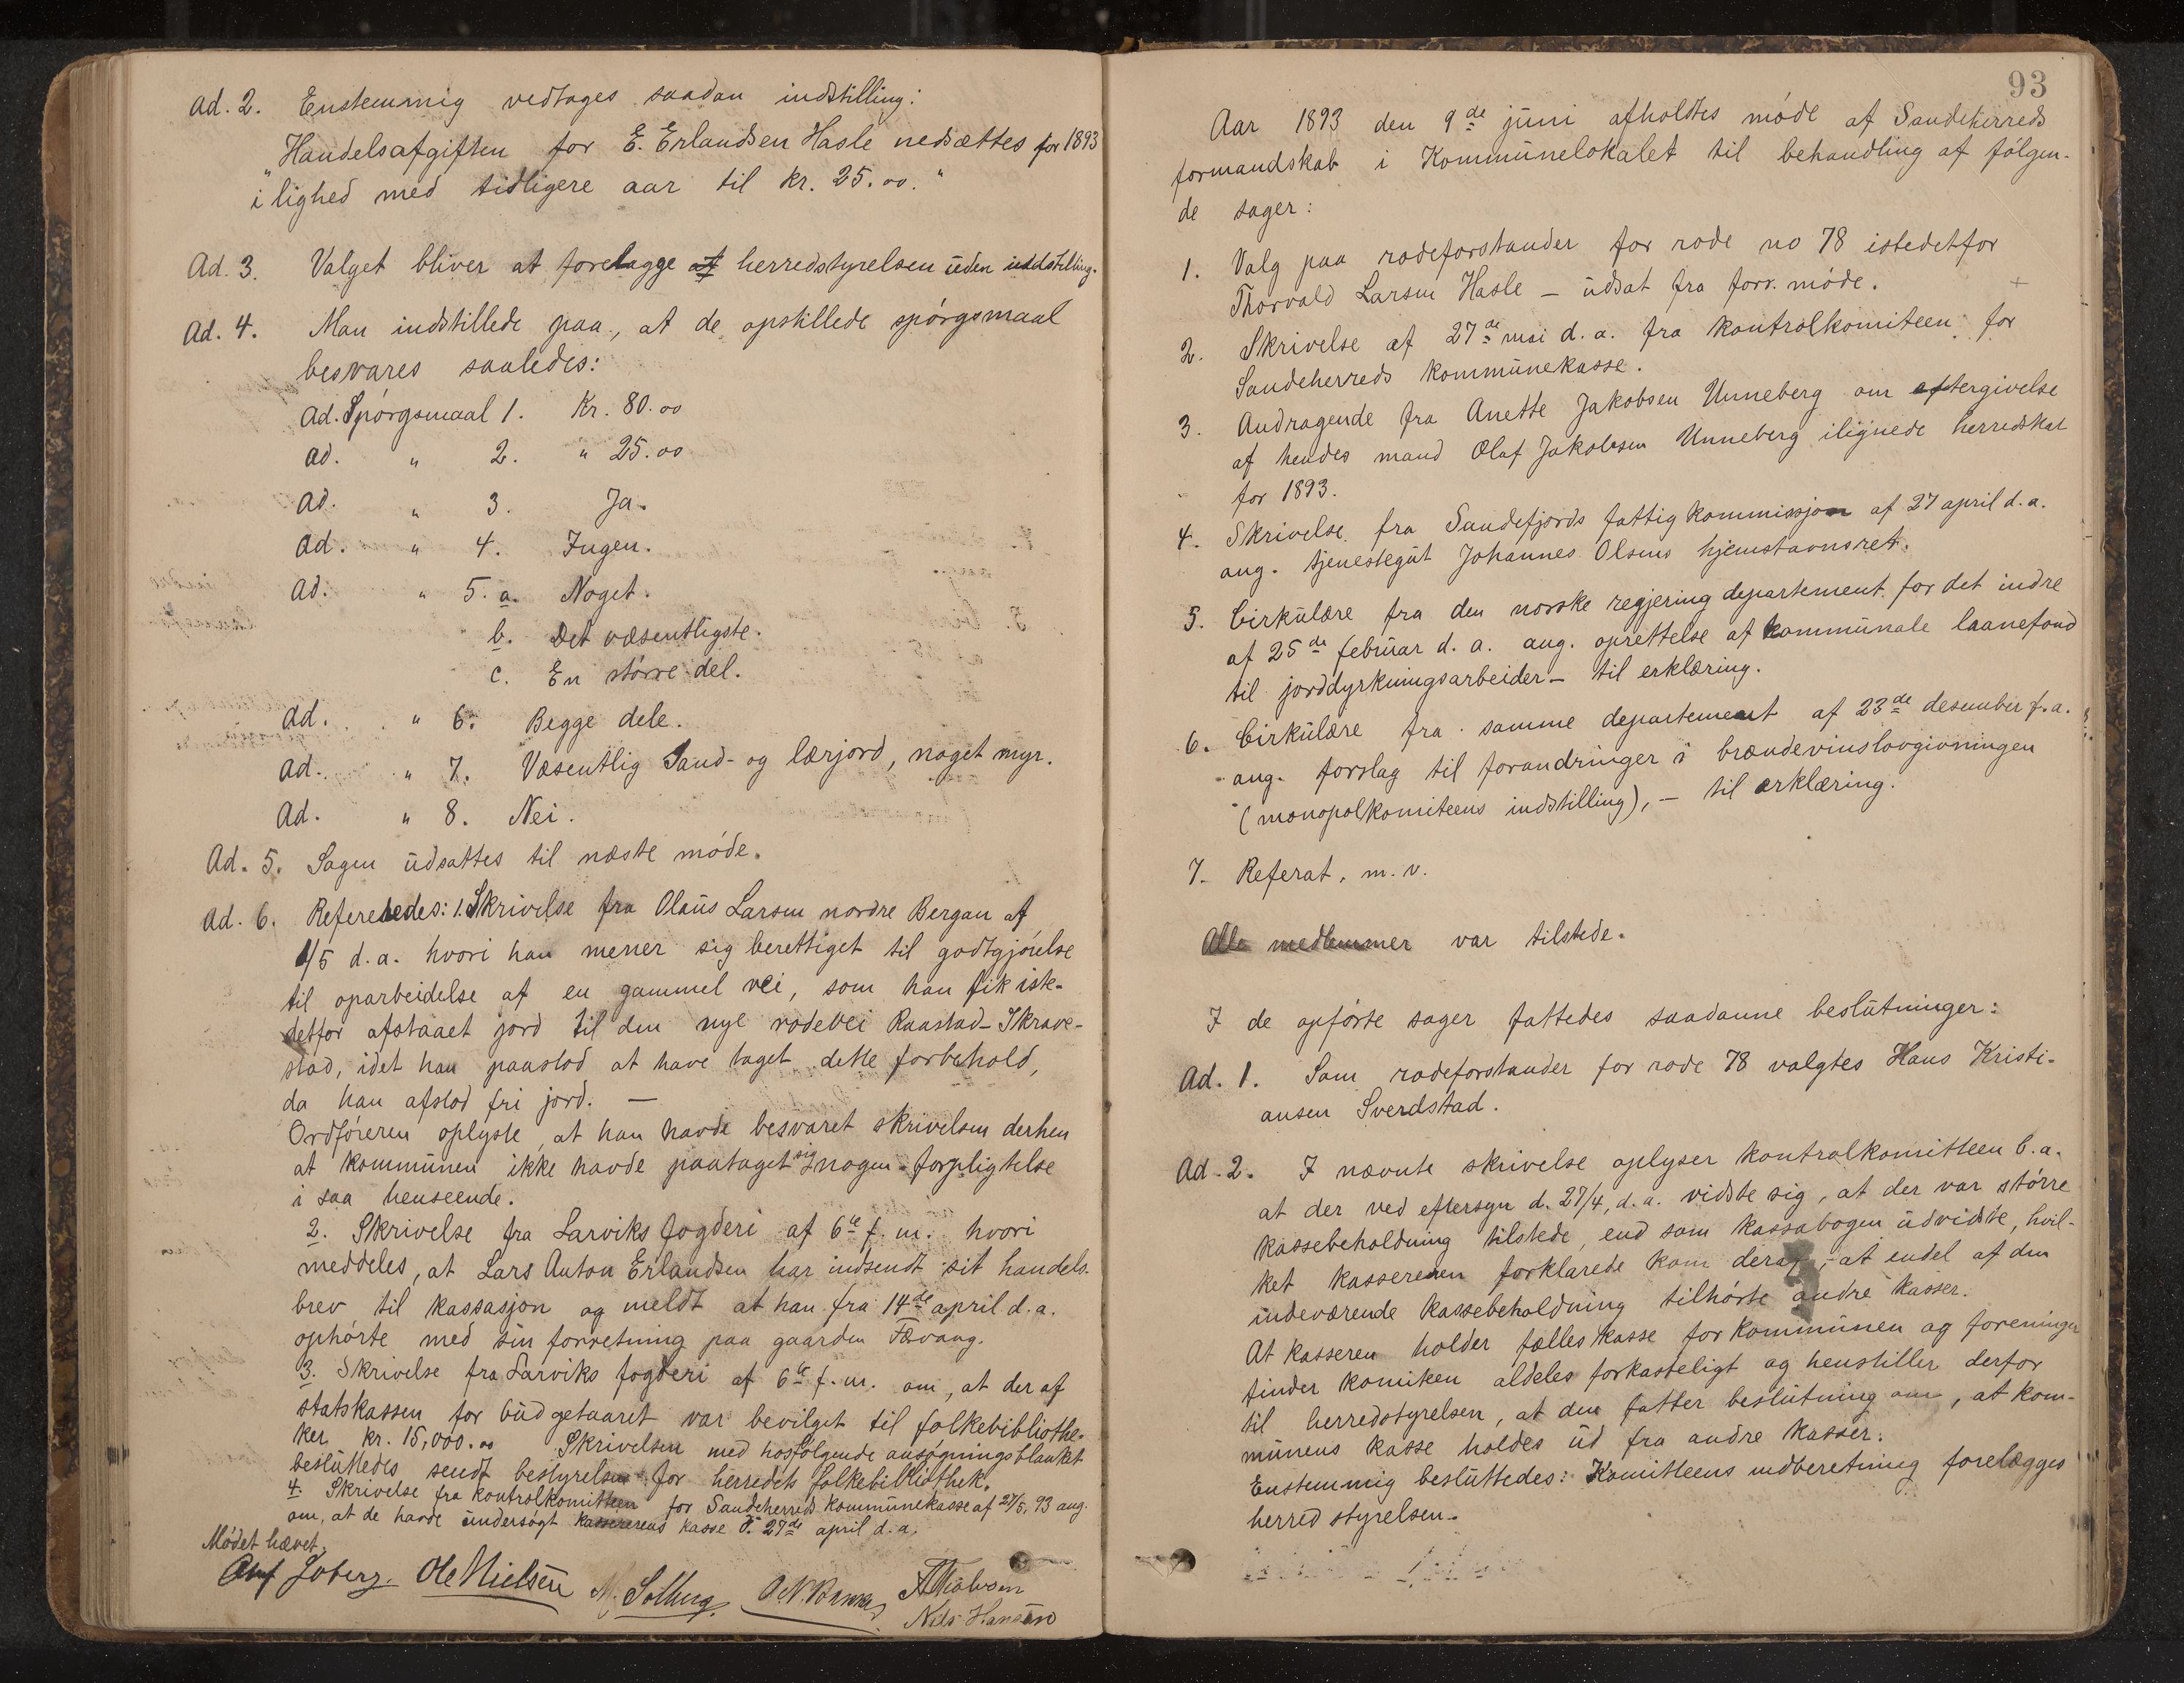 Ad. 2. Enstemmig vedtages saadan indstilling:
"Handelsafgiften for E. Erlandsen Hasle nedsættes for 1893
i lighed med tidligere aar til kr. 25.00."
Ad. 3. Valget bliver at forelægge herredstyrelsen uden inddstilling.
Ad. 4. Man indstillede paa, at de opstillede spørgsmaal
besvares saaledes:
Ad. Spørgsmaal 1. Kr. 80.00
ad. " 2. " 25.00
Ad. " 3. Ja.
Ad. " 4. Ingen.
Ad. " 5. a. Noget.
b. Det væsentligste.
c. En større del.
Ad. " 6. Begge dele.
Ad. " 7. Væsentlig Sand- og lærjord, noget myr.
Ad. " 8. Nei.
Ad. 5. Sagen udsattes til næste møde.
Ad. 6. Refereredes: 1. Skrivelse fra Olaus Larsen nordre Bergan af
1/5 d.a. hvori han mener sig berettiget til godtgjørelse
til oparbeidelse af en gammel vei, som han fik iste-
detfor afstaaet jord til den nye rodevei Raastad-Skrave-
stad, idet han paastod at have taget dette forbehold,
da han afstod fri jord. —
Ordføreren oplyste, at han havde besvaret skrivelsen derhen
at kommunen ikke havde paataget sig nogen forpligtelse
i saa henseende.
2. Skrivelse fra Larviks fogderi af 6te f.m. hvori
meddeles, at Lars Anton Erlandsen har indsendt sit handels-
brev til kassasjon og meldt at han fra 14de april d.a.
ophørte med sin forretning paa gaarden Fævang.
3. Skrivelse fra Larviks fogderi af 6te f.m. om, at der af
statskassen for budgetaaret var bevilget til folkebibliothe-
ker kr. 15,000.00 Skrivelsen med hosfølgende ansøgningsblanket
besluttedes sendt bestyrelsen for herredets folkebibliothek.
4. Skrivelse fra kontrolkomitteen for Sandeherreds kommunekasse af 27/5, 93 ang.
om, at de havde undersøgt kassererens kasse d. 27de april d.a.
Mødet hævet.
Soberg. Ole Nielsen M. Solberg.
Nils Hansen
93
Aar 1893 den 9de juni afholdtes møde af Sandeherreds
formandskab i Kommunelokalet til behandling af følgen-
de sager:
1. Valg paa rodeforstander for rode no 78 istedetfor
Thorvald Larsen Hasle — udsat fra forr. møde.
2. Skrivelse af 27de mai d.a. fra kontrolkomiteen for
Sandeherreds kommunekasse.
3. Andragende fra Anette Jakobsen Unneberg om eftergivelse
af hendes mand Olaf Jakobsen Unneberg ilignede herredskat
for 1893.
4. Skrivelse fra Sandefjords fattigkommissjon af 27 april d.a.
ang. tjenestegut Johannes Olsens hjemstavnsret.
5. Cirkulære fra den norske regjering departement for det indre
af 25de februar d.a. ang. oprettelse af kommunale laanefond
til jorddyrkningsarbeider — til erklæring.
6. Cirkulære fra samme departement af 23de desember f.a.
ang. forslag til forandringer i brændevinslovgivningen
(monopolkomiteens indstilling), — til erklæring.
7. Referat, m.v.
Alle medlemmer var tilstede.
I de opførte sager fattedes saadanne beslutninger:
Ad. 1. Som rodeforstander for rode 78 valgtes Hans Kristi-
ansen Sverdstad.
Ad. 2. I nævnte skrivelse oplyser kontrolkomitteen b.a.
at der ved eftersyn d. 27/4, d.a. vidste sig, at der var større
kassebeholdning tilstede, end som kassabogen udvidste, hvil-
ket kassereren forklarede kom deraf, at endel af den
indeværende kassebeholdning tilhørte andre kasser.
At kasseren holder fælles kasse for kommunen og foreninger
finder komiteen aldeles forkasteligt og henstiller derfor
til herredstyrelsen, at den fatter beslutning om, at kom-
munens kasse holdes ud fra andre kasser.
Enstemmig besluttedes: Komitteens indberetning forelægges
herredstyrelsen.